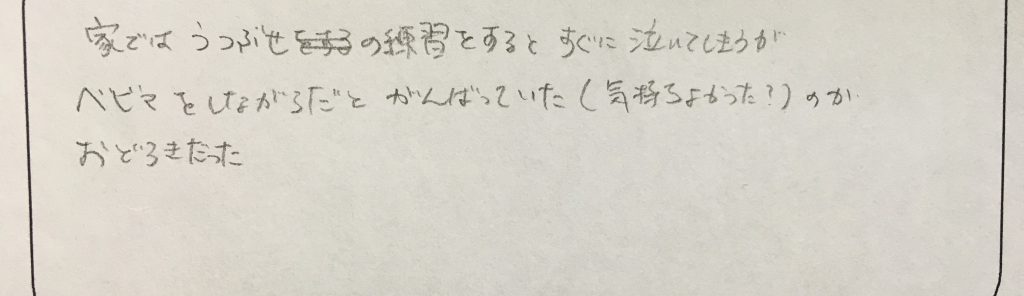 家では うつぶせの練習をすると すぐに 泣いてしまうが
ベビマ をしながらだと がんばっていた (気持ちよかった?) のが
おどろきだった